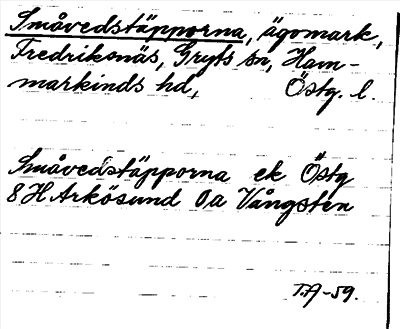 Småvedstäpporna, ägomark,
Fredriksnäs, Gryts sn, Ham-
markinds hd, Östg. l.
Småvedstäpporna ek Östg
8 H Arkösund 0,a Vångsten
T.A-59.